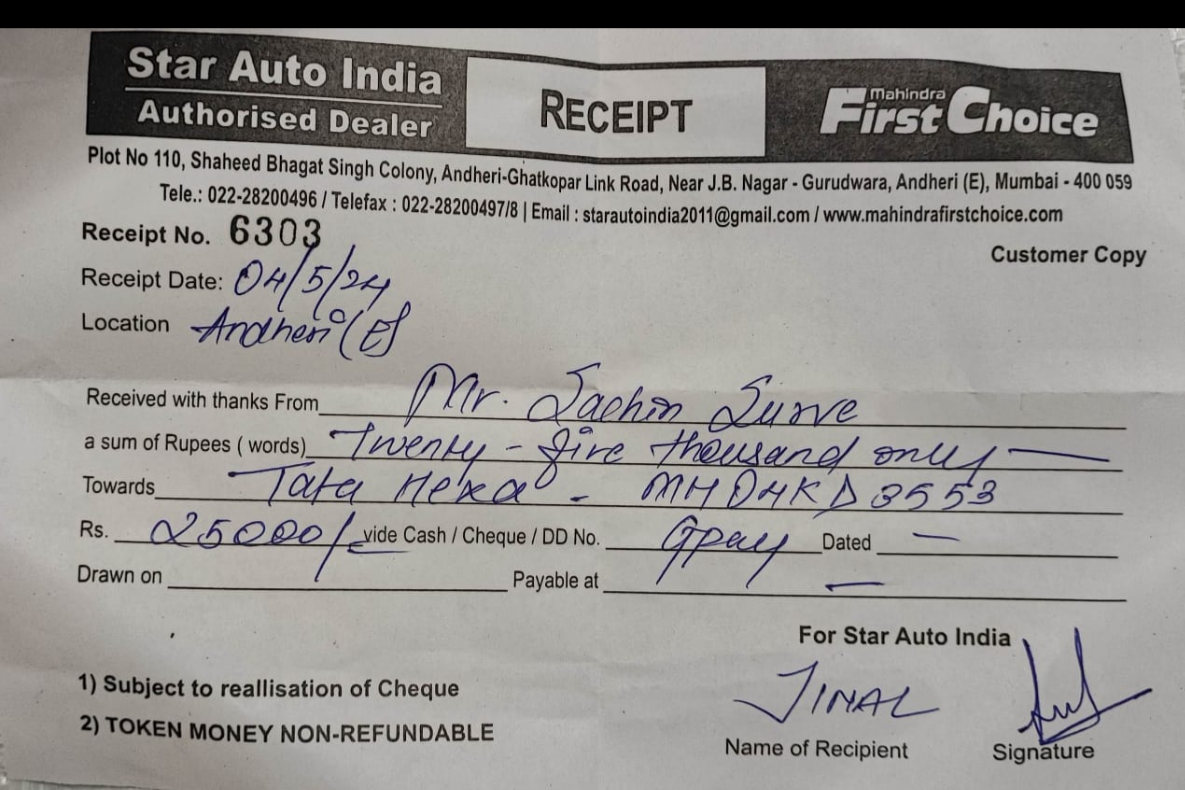 Star Auto India
Authorised Dealer
RECEIPT
Mahindra
First Choice
Plot No 110, Shaheed Bhagat Singh Colony, Andheri-Ghatkopar Link Road, Near J.B. Nagar - Gurudwara, Andheri (E), Mumbai - 400 059
Tele.: 022-28200496 / Telefax : 022-28200497/8 | Email : starautoindia2011@gmail.com / www.mahindrafirstchoice.com
Receipt No. 6303
Customer Copy
Receipt Date: 04/5/24
Location Andheri (E)
Received with thanks From Mr. Sachin Surve
a sum of Rupees ( words) Twenty - five thousand only —
Towards Tata Hexa - MH04KD3553
Rs. 25000/- vide Cash / Cheque / DD No. Gpay Dated —
Drawn on Payable at —
For Star Auto India
1) Subject to reallisation of Cheque
2) TOKEN MONEY NON-REFUNDABLE
JINAL
Name of Recipient Signature